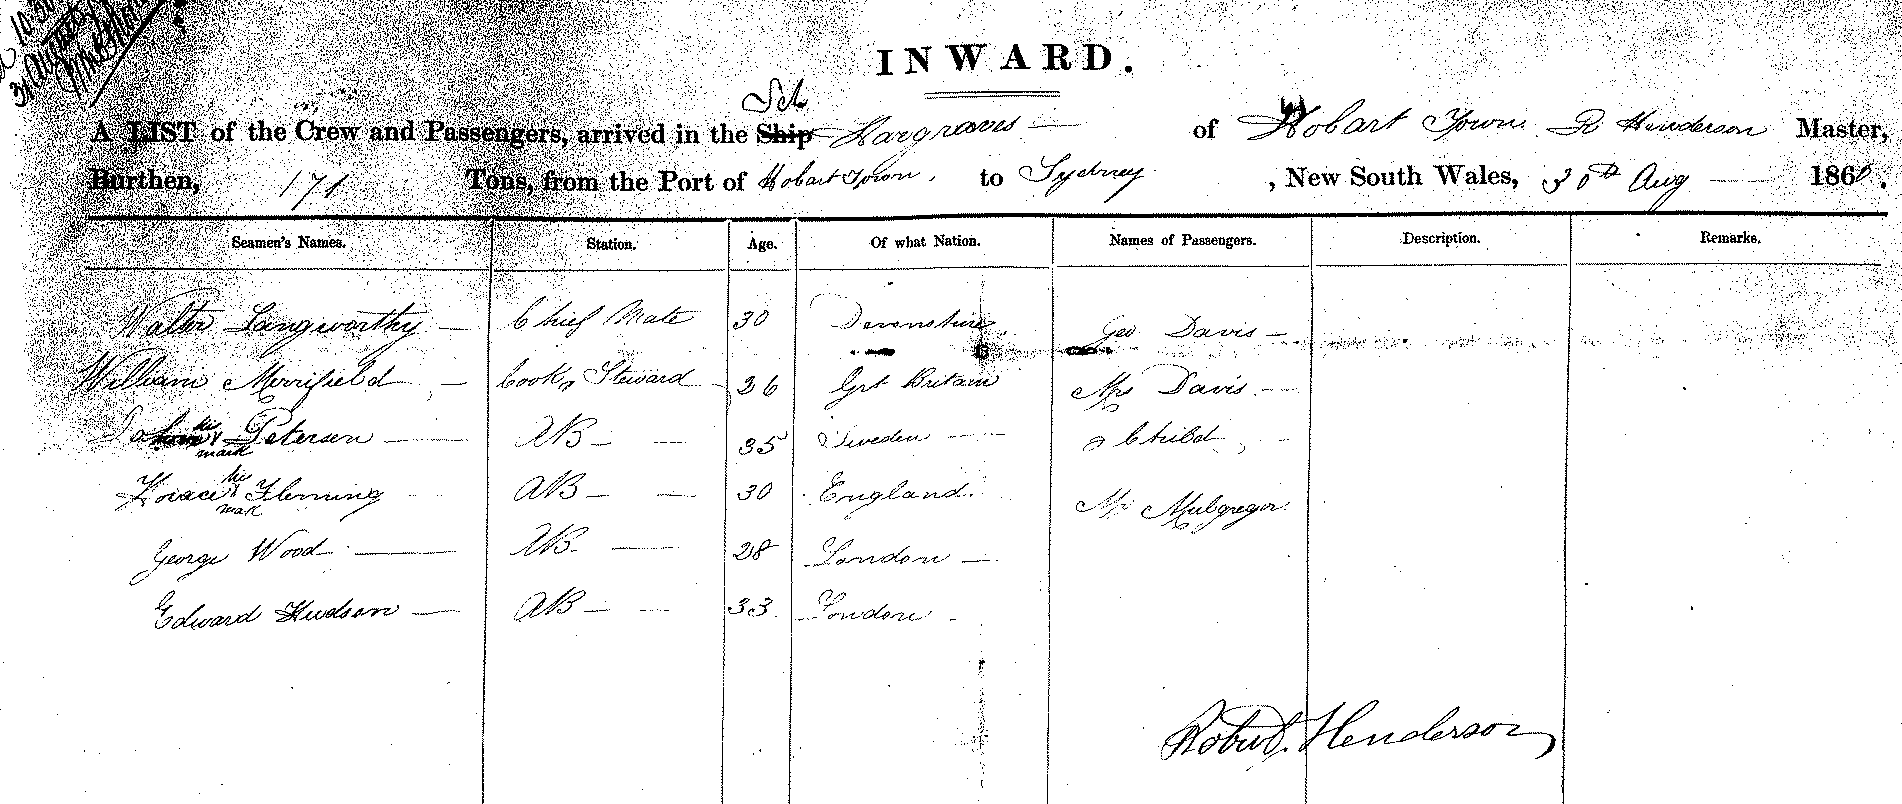 10 30
31 August
INWARD.
Sch
A LIST of the Crew and Passengers, arrived in the Ship Hargraves — of Hobart Town R Henderson Master,
Burthen, 171 Tons, from the Port of Hobart Town, to Sydney, New South Wales, 30th Aug — 1860.
Seamen's Names. Station. Age. Of what Nation. Names of Passengers. Description. Remarks.
Walter Langworthy — Chief Mate 30 Devonshire Geo Davis —
William Merrifield — Cook & Steward 26 Grt Britain Mrs Davis —
John his x mark Petersen — AB — 35 Sweden — & Child —
Horace his x mark Fleming AB — 30 England. Mr McGregor
George Wood — AB — 28 London —
Edward Hudson — AB — 33 London -
Robert Henderson